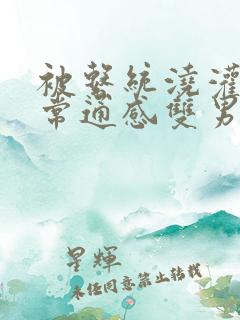 被繫統澆灌
常通感雙男
星輝
未经同意禁止转载